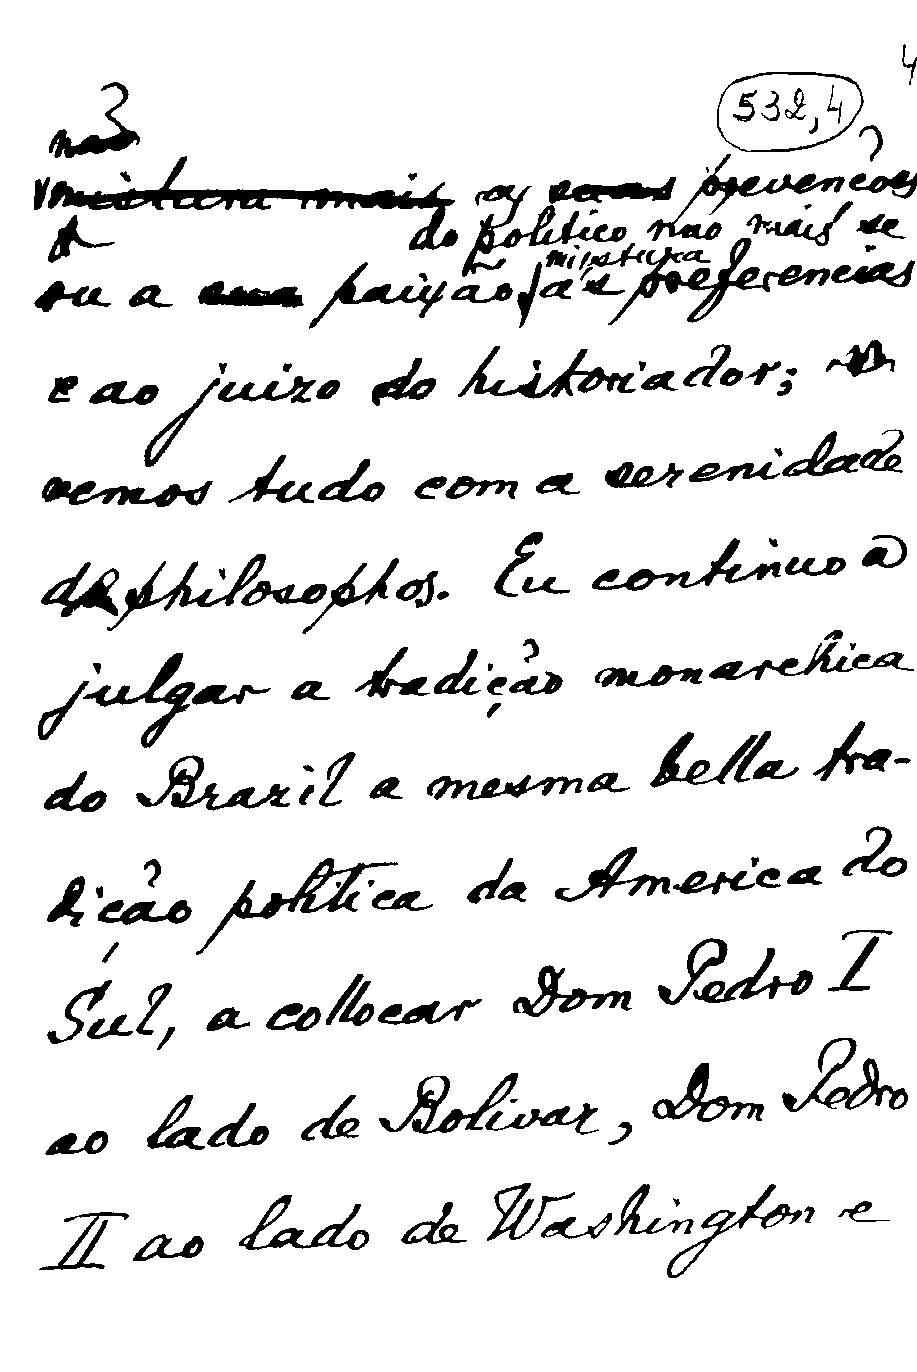 4
532,4
não
mistura mais as suas prevenções
do politico não mais se
mistura
ou a sua paixão, ás preferencias
e ao juizo do historiador;
vemos tudo com a serenidade
de philosophos. Eu continuo a
julgar a tradição monarchica
do Brazil a mesma bella tra-
dição politica da America do
Sul, a collocar Dom Pedro I
ao lado de Bolivar, Dom Pedro
II ao lado de Washington e